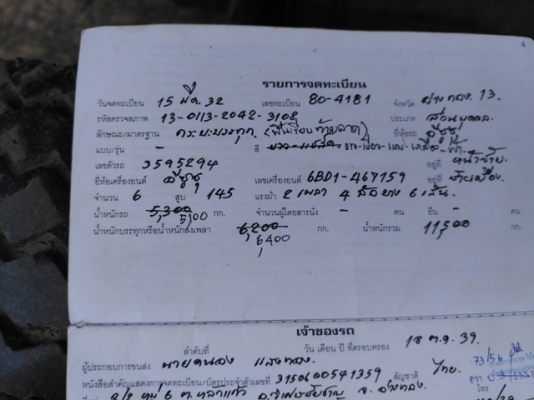 4
รายการจดทะเบียน
วันจดทะเบียน 15 มี.ค. 32 เลขทะเบียน 80-4181 จังหวัด อ่างทอง 13.
รหัสตรวจสภาพ 13-0113-2042-3108 ประเภท ส่วนบุคคล
ลักษณะ/มาตรฐาน กระบะบรรทุก (พื้นเรียบ ท้ายลาด) ยี่ห้อรถ อีซูซุ
แบบ/รุ่น - สี
เลขตัวรถ 3595294 อยู่ที่ หน้าซ้าย
ยี่ห้อเครื่องยนต์ อีซูซุ เลขเครื่องยนต์ 6BD1-467159 อยู่ที่ ซ้ายเครื่อง
จำนวน 6 สูบ 145 แรงม้า 2 เพลา 4 ล้อ ยาง 6 เส้น
น้ำหนักรถ 5,300 5,100 กก. จำนวนผู้โดยสารนั่ง - คน ยืน - คน
น้ำหนักบรรทุกหรือน้ำหนักลงเพลา 6,200 6,400 กก. น้ำหนักรวม 11,500 กก.
เจ้าของรถ
ลำดับที่ วัน เดือน ปี ที่ครอบครอง 18 ต.ค. 39.
ผู้ประกอบการขนส่ง นายคนอง แสงทอง
หนังสือสำคัญแสดงการจดทะเบียน/บัตรประจำตัวเลขที่ 3150600541359 สัญชาติ ไทย.